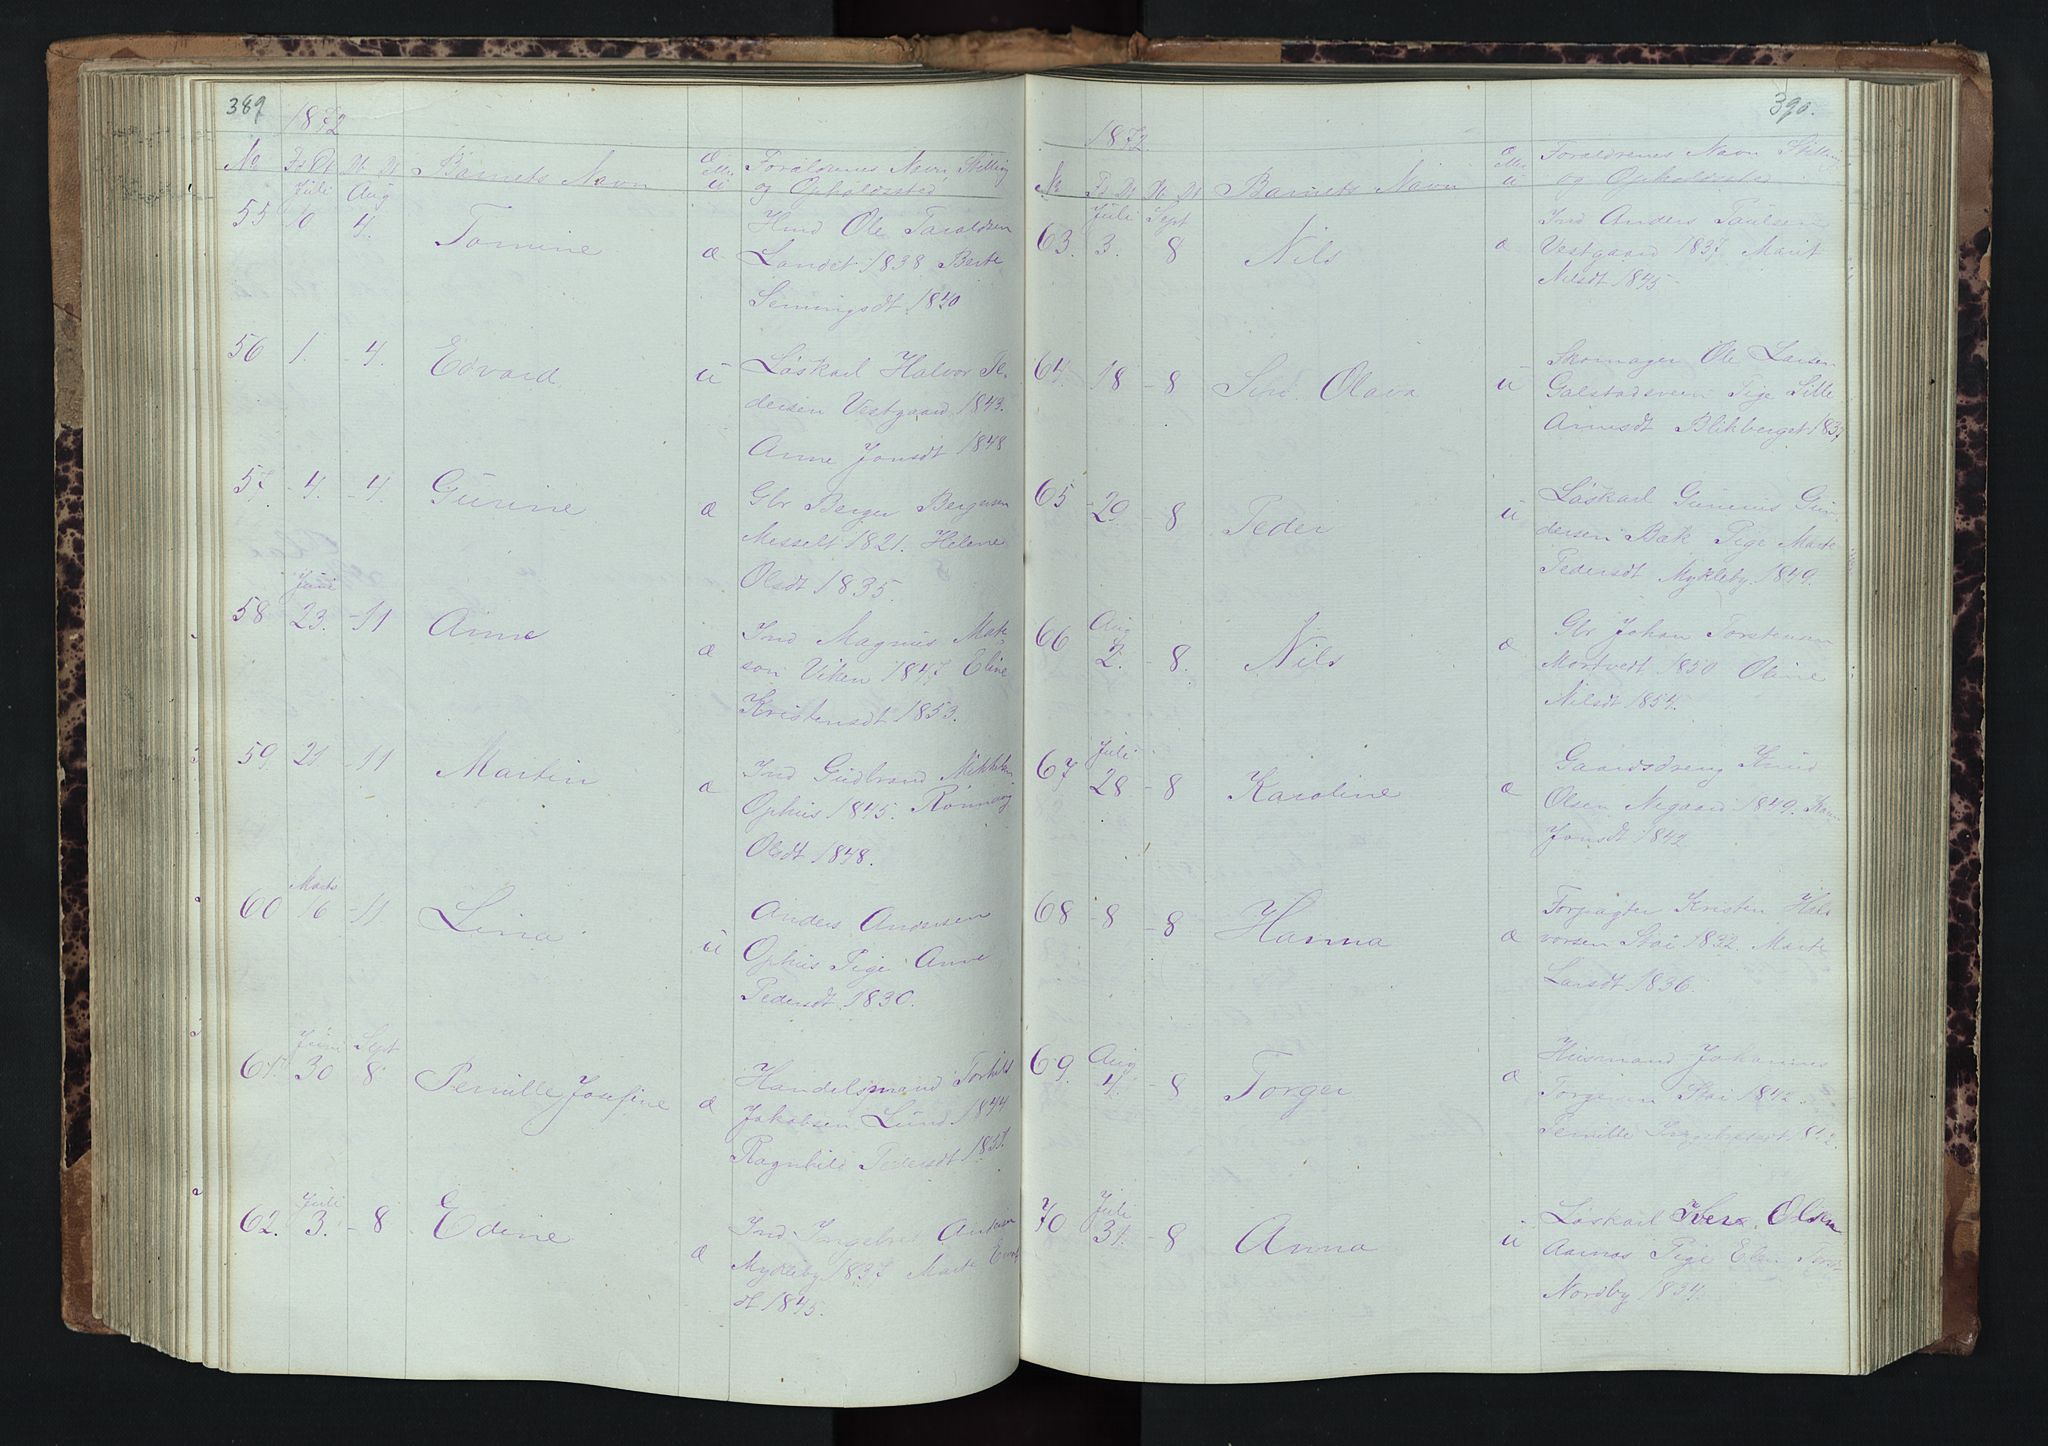 389
1872
No Fs Dt Db Dt Barnets Navn Æ eller U Forældrenes Navn, Stilling
og Opholdssted
Juli Aug
55 6 4. Tomine æ Husmd Ole Taraldsen
Landet 1838 Berte
Semmingsdt 1840
56 1. - 4. Edvard u Løskarl Halvor Pe-
dersen Vestgaard 1843.
Anne Jonsdt 1848
57 - 4. - 4. Gurine æ Gbr Berger Bergersen
Messelt 1821. Helene
Olsdt 1835.
Juni
58 23. - 11 Anne æ Ind Magnus Mate-
son Viken 1847 Eline
Kristensdt 1853.
59. 21 - 11 Martin æ Ind Gudbrand Mikkels
Ophus 1845. Rønnaug
Olsdt 1848.
Marts
60 16 - 11 Lina u Anders Andersen
Ophus Pige Anne
Pedersdt 1830.
Juni Sept
61. 30 8. Pernille Josefine æ Handelsmand Torkild
Jakobsen Lund 1844
Ragnhild Pedersdt
Juli
62. 3. - 8 Edine æ Ind. Ingebr
Mykleby 1837 Marte
dt 1845.
390.
1872.
No Fs Dt Db Dt Barnets Navn Æ eller U Forældrenes Navn Stilling
og Opholdssted
Juli Sept
63. 3. 8 Nils æ Ind Anders Paulsen
Vestgaard 1837 Marit
Nilsdt 1845
64. 18 - 8 Siri Olava u Skomager Ole Larsen
Galstadsveen Pige Sille
Arnesdt Blikberget 1837
65 - 29. - 8 Peder u Løskarl Gunerus Gun-
dersen Bæk Pige Marte
Pedersdt Mykleby 1849.
Aug
66 2. - 8. Nils æ Gbr Johan Torstensen
Mortvedt 1850 Oline
Nilsdt 1854.
Juli
67 28 - 8 Karoline æ Gaardsdreng Knud
Olsen Negaard 1849. Karen
Jonsdt 1842
68 - 8 - 8 Hanna æ Forpagter Kristen Hal
vorsen Stai 1832. Marte
Larsdt 1836.
Aug
69. 4. - 8 Torger æ Husmand Johannes
Torgersen Stai 1842.
Pernille Ingebretsdt
Juli
70 31. - 8 Anna u Løskarl Iver Olsen
Aarnes Pige Elen
Nordby 1834.